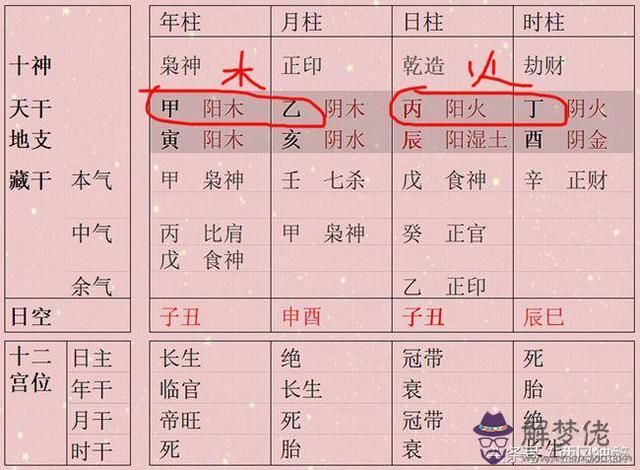 年柱 月柱 日柱 时柱
十神 枭神 木 正印 乾造 火 劫财
天干 甲 阳木 乙 阴木 丙 阳火 丁 阴火
地支 寅 阳木 亥 阴水 辰 阳湿土 酉 阴金
藏干 本气 甲 枭神 壬 七杀 戊 食神 辛 正财
中气 丙 比肩 甲 枭神 癸 正官
戊 食神
余气 乙 正印
日空 子丑 申酉 子丑 辰巳
十二宫位 日主 长生 绝 冠带 死
年干 临官 长生 衰 胎
月干 帝旺 死 冠带 绝
时干 死 胎 衰
解梦佬